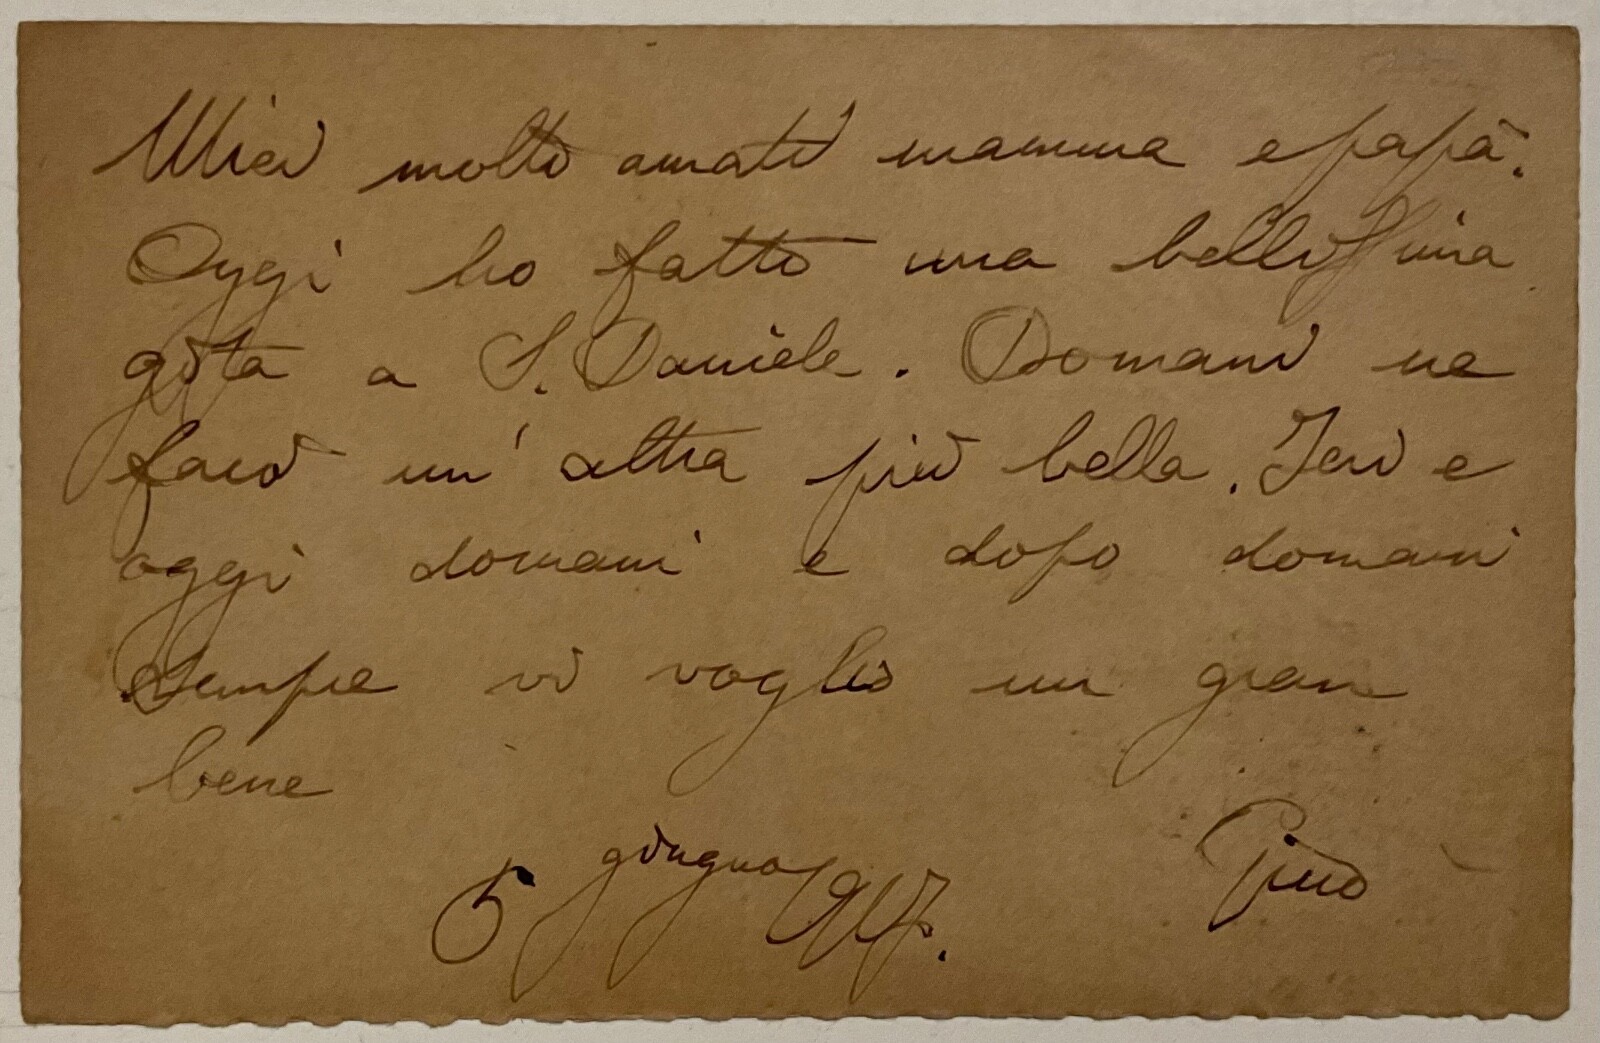 Miei molto amati mamma e papà.
Oggi ho fatto una bellissima
gita a S. Daniele. Domani ne
farò un' altra più bella. Ieri e
oggi domani e dopo domani
sempre vi voglio un gran
bene
5 giugno 917. Pino